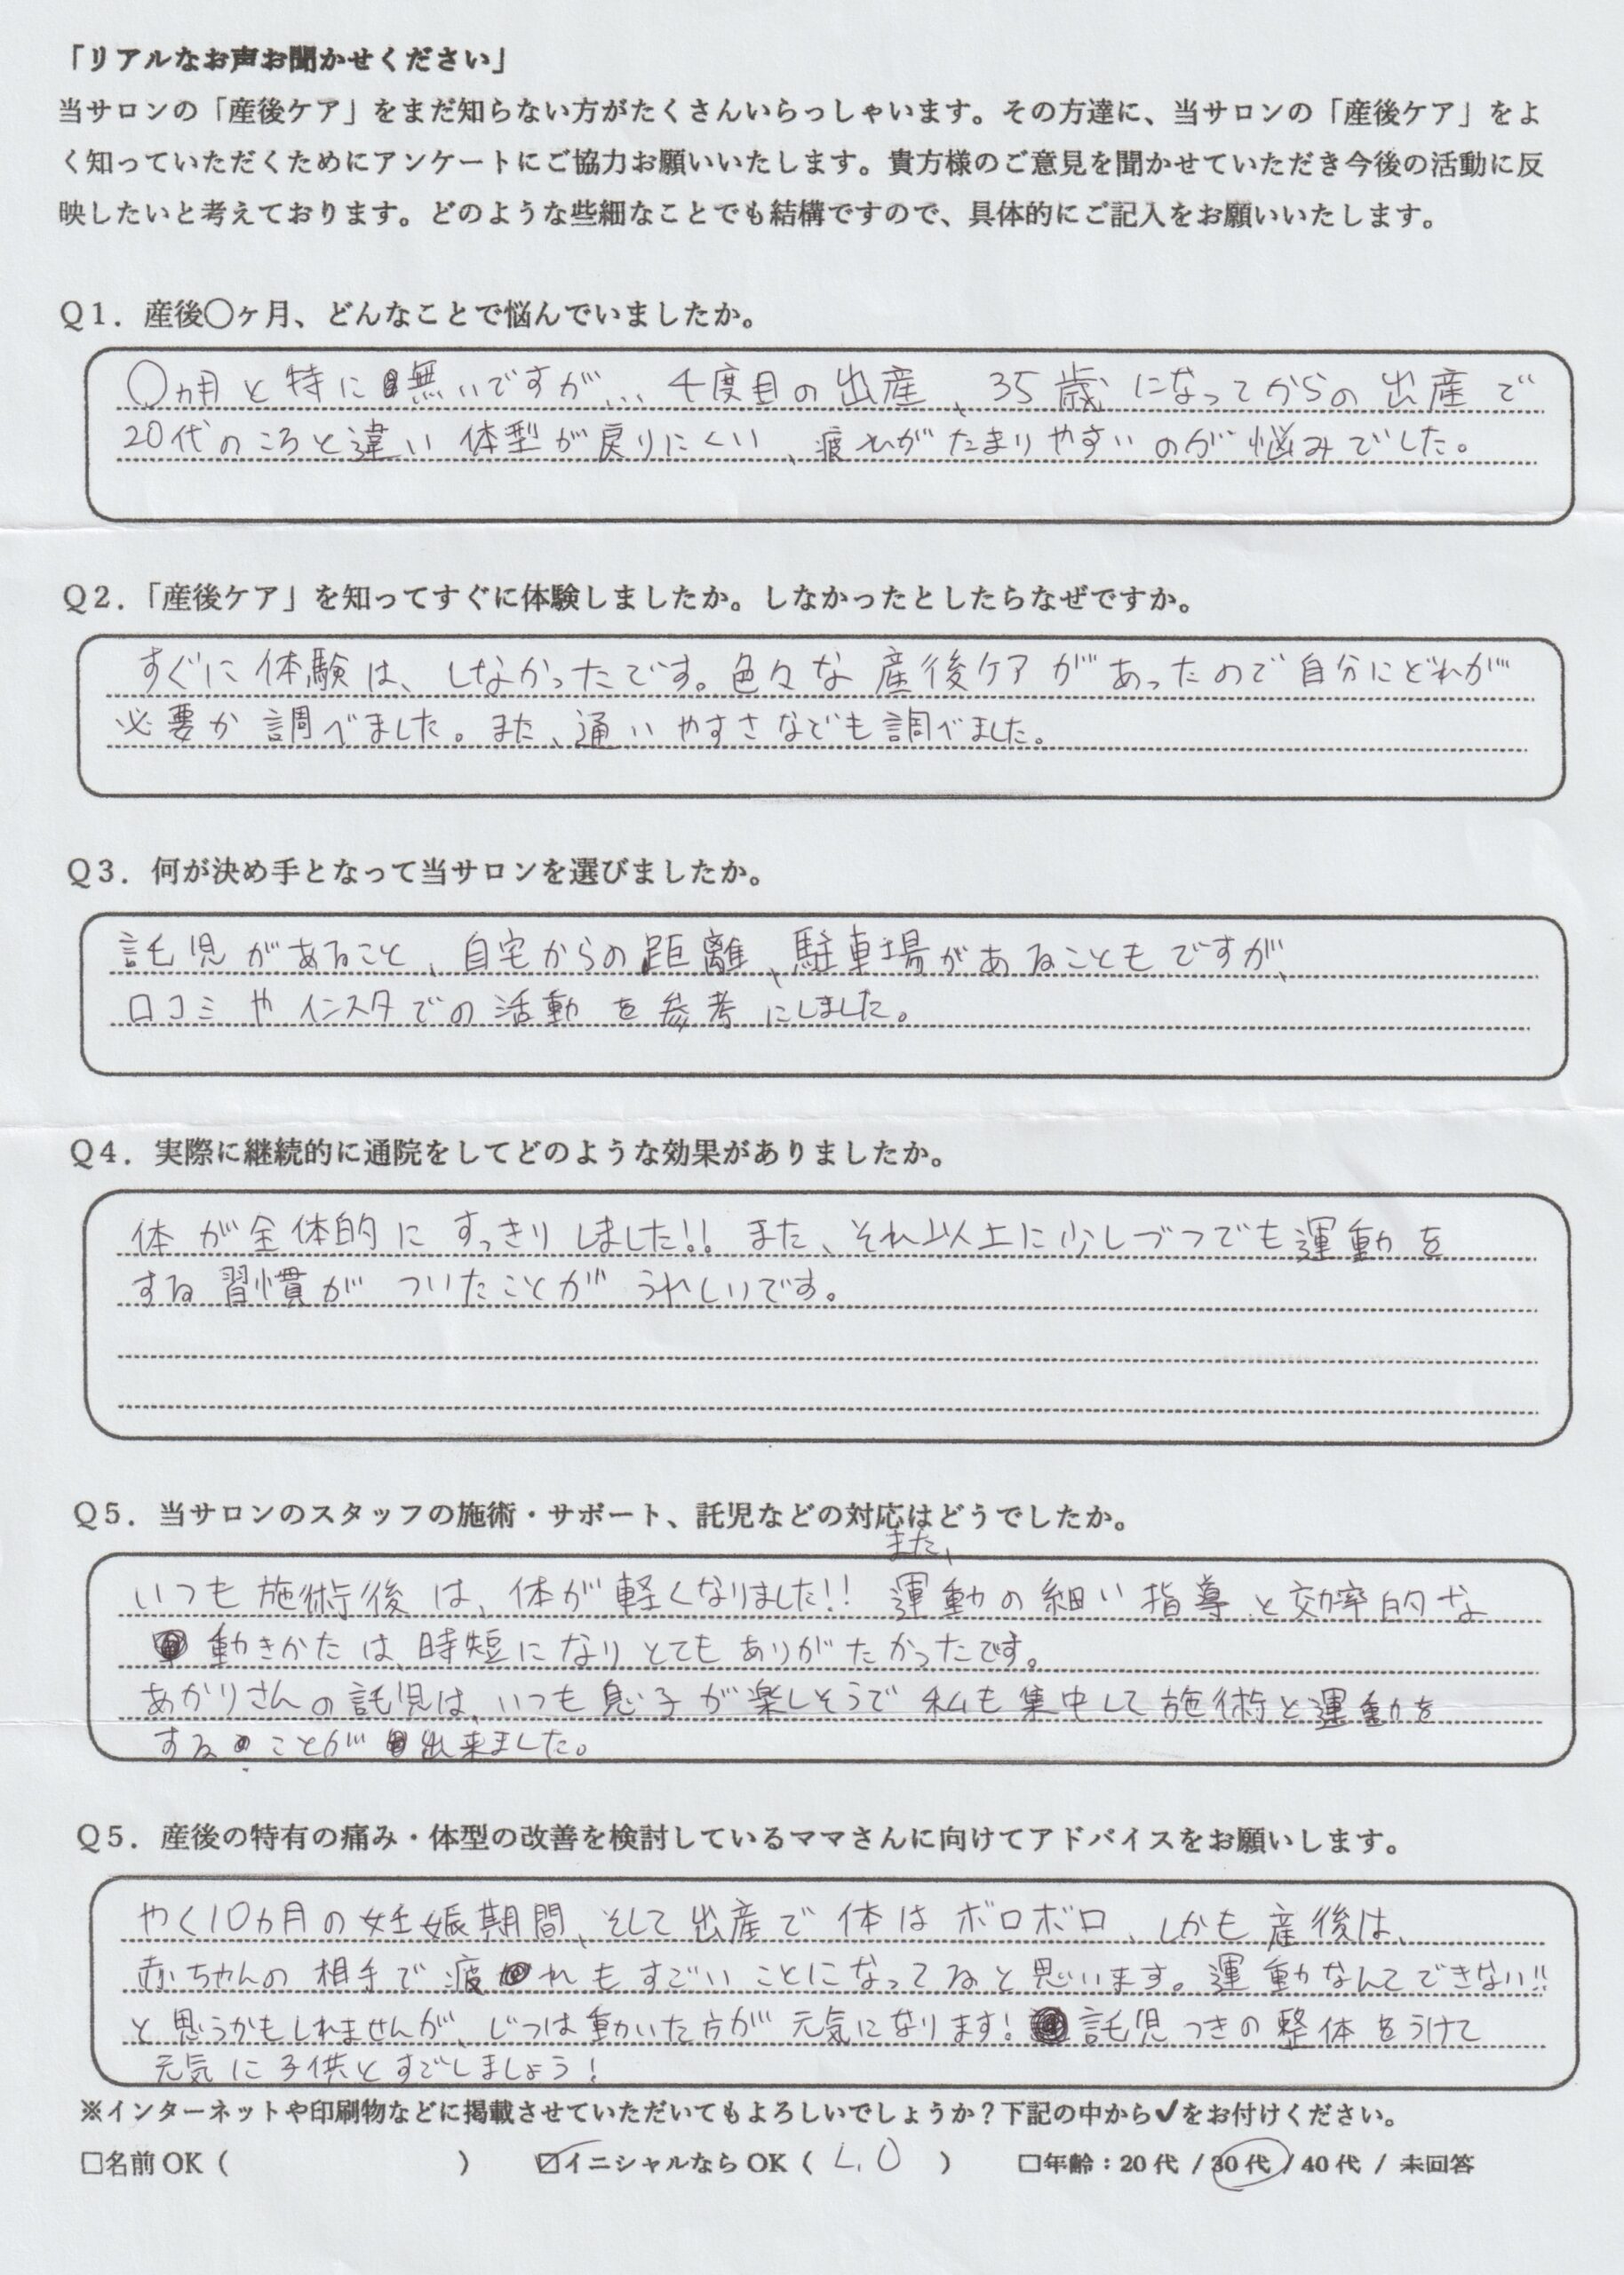 「リアルなお声お聞かせください」
当サロンの「産後ケア」をまだ知らない方がたくさんいらっしゃいます。その方達に、当サロンの「産後ケア」をよ
く知っていただくためにアンケートにご協力お願いいたします。貴方様のご意見を聞かせていただき今後の活動に反
映したいと考えております。どのような些細なことでも結構ですので、具体的にご記入をお願いいたします。
Q1．産後〇ヶ月、どんなことで悩んでいましたか。
〇ヵ月と特に無いですが... 4度目の出産、35歳になってからの出産で
20代のころと違い体型が戻りにくい、疲れがたまりやすいのが悩みでした。
Q2．「産後ケア」を知ってすぐに体験しましたか。しなかったとしたらなぜですか。
すぐに体験は、しなかったです。色々な産後ケアがあったので自分にどれが
必要か調べました。また、通いやすさなども調べました。
Q3．何が決め手となって当サロンを選びましたか。
託児があること、自宅からの距離、駐車場があることもですが、
口コミやインスタでの活動を参考にしました。
Q4．実際に継続的に通院をしてどのような効果がありましたか。
体が全体的にすっきりしました!! また、それ以上に少しづつでも運動を
する習慣がついたことがうれしいです。
Q5．当サロンのスタッフの施術・サポート、託児などの対応はどうでしたか。
また、
いつも施術後は、体が軽くなりました!! 運動の細い指導と効率的な
動きかたは、時短になりとてもありがたかったです。
あかりさんの託児は、いつも息子が楽しそうで私も集中して施術と運動を
することが出来ました。
Q5．産後の特有の痛み・体型の改善を検討しているママさんに向けてアドバイスをお願いします。
やく10ヵ月の妊娠期間、そして出産で体はボロボロ、しかも産後は、
赤ちゃんの相手で疲れもすごいことになってると思います。運動なんてできない!!
と思うかもしれませんが、じつは動いた方が元気になります! 託児つきの整体をうけて
元気に子供とすごしましょう!
※インターネットや印刷物などに掲載させていただいてもよろしいでしょうか？下記の中から✔をお付けください。
□名前 OK（　　　　　　　） ☑イニシャルなら OK（ L.O ） □年齢：20 代 / 30 代 / 40 代 / 未回答